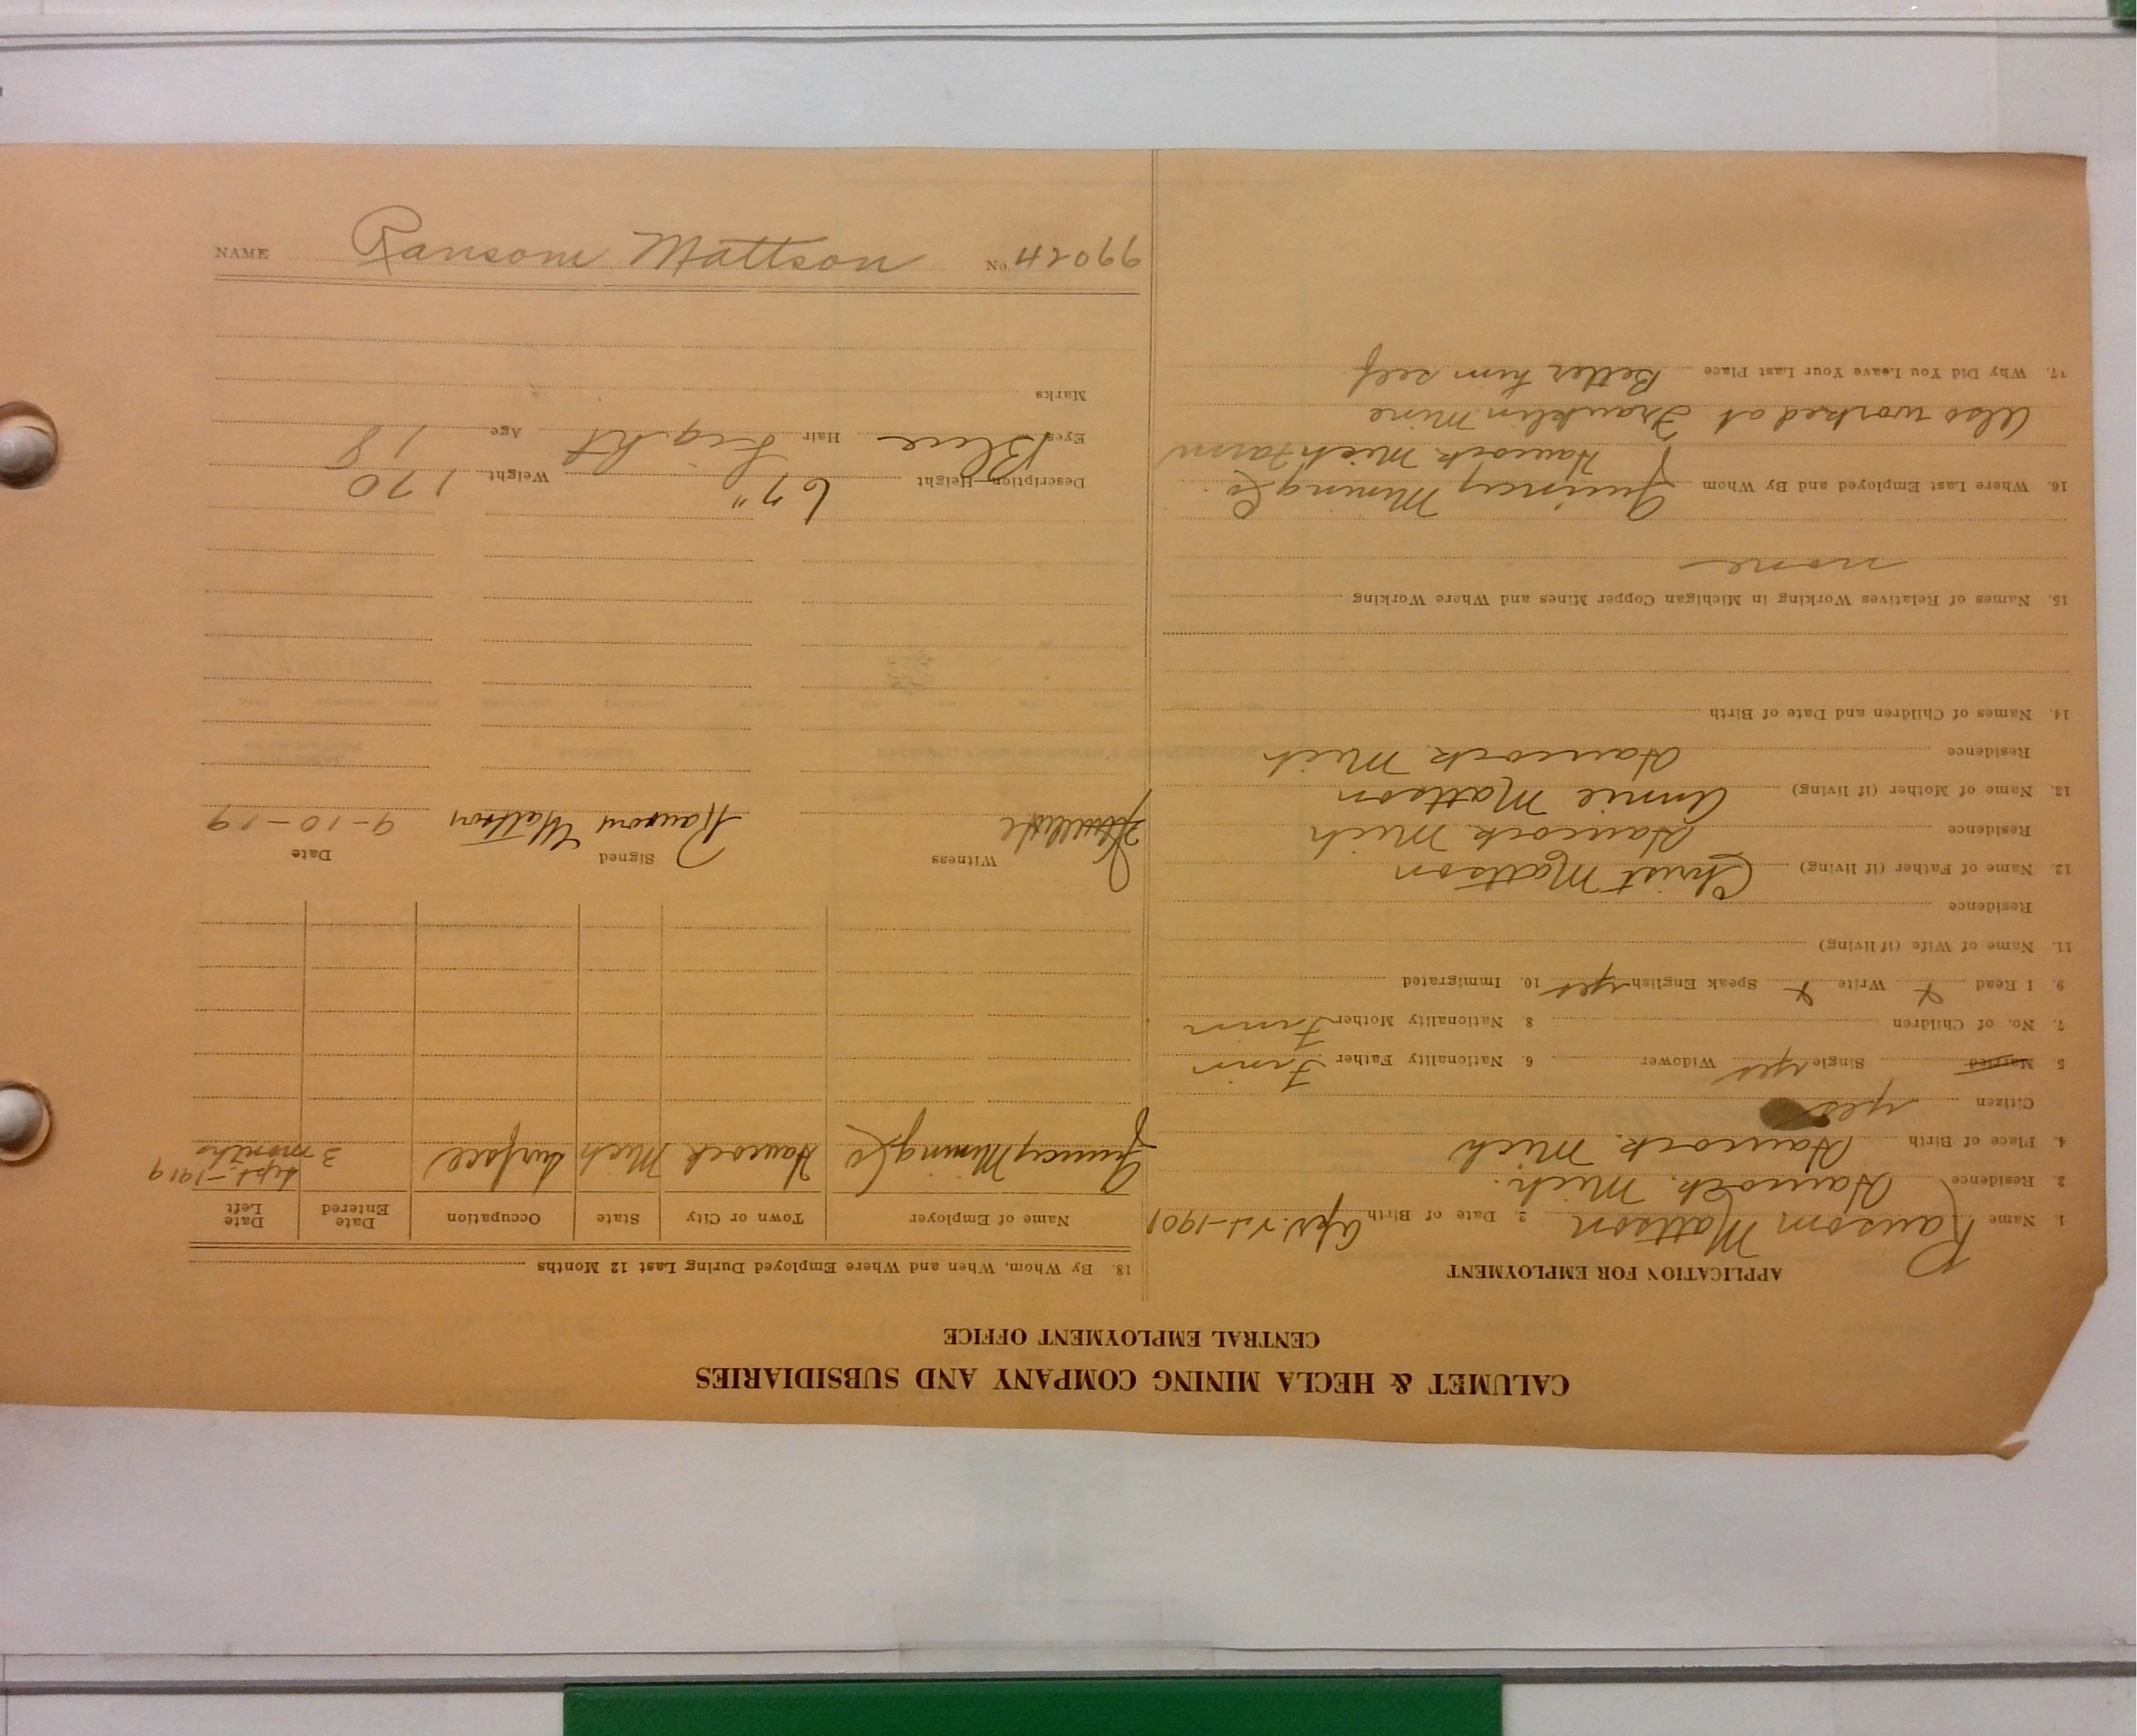 CALUMET & HECLA MINING COMPANY AND SUBSIDIARIES
CENTRAL EMPLOYMENT OFFICE
APPLICATION FOR EMPLOYMENT
1. Name Ransom Mattson 2. Date of Birth Apr. 1901
3. Residence Hancock. Mich.
4. Place of Birth Hancock. Mich
Citizen yes
5. Married Single yes Widower 6. Nationality Father Finn
7. No. of Children 8. Nationality Mother Finn
9. I Read x Write x Speak English yes 10. Immigrated
11. Name of Wife (if living)
Residence
12. Name of Father (if living) Christ Mattson
Residence Hancock Mich
13. Name of Mother (if living) Annie Mattson
Residence Hancock Mich
14. Names of Children and Date of Birth
15. Names of Relatives Working in Michigan Copper Mines and Where Working
none
16. Where Last Employed and By Whom Quincy Mining Co.
Hancock Mich Farm
Also worked at Franklin Mine
17. Why Did You Leave Your Last Place Better him self
18. By Whom, When and Where Employed During Last 12 Months
Name of Employer Town or City State Occupation Date Entered Date Left
Quincy Mining Co Hancock Mich Surface 3 months Sept-1919
Witness Signed Date
Ransom Mattson 9-10-19
Description—Height 67" Weight 170
Eyes Blue Hair Light Age 18
Marks
NAME Ransom Mattson No. 42099